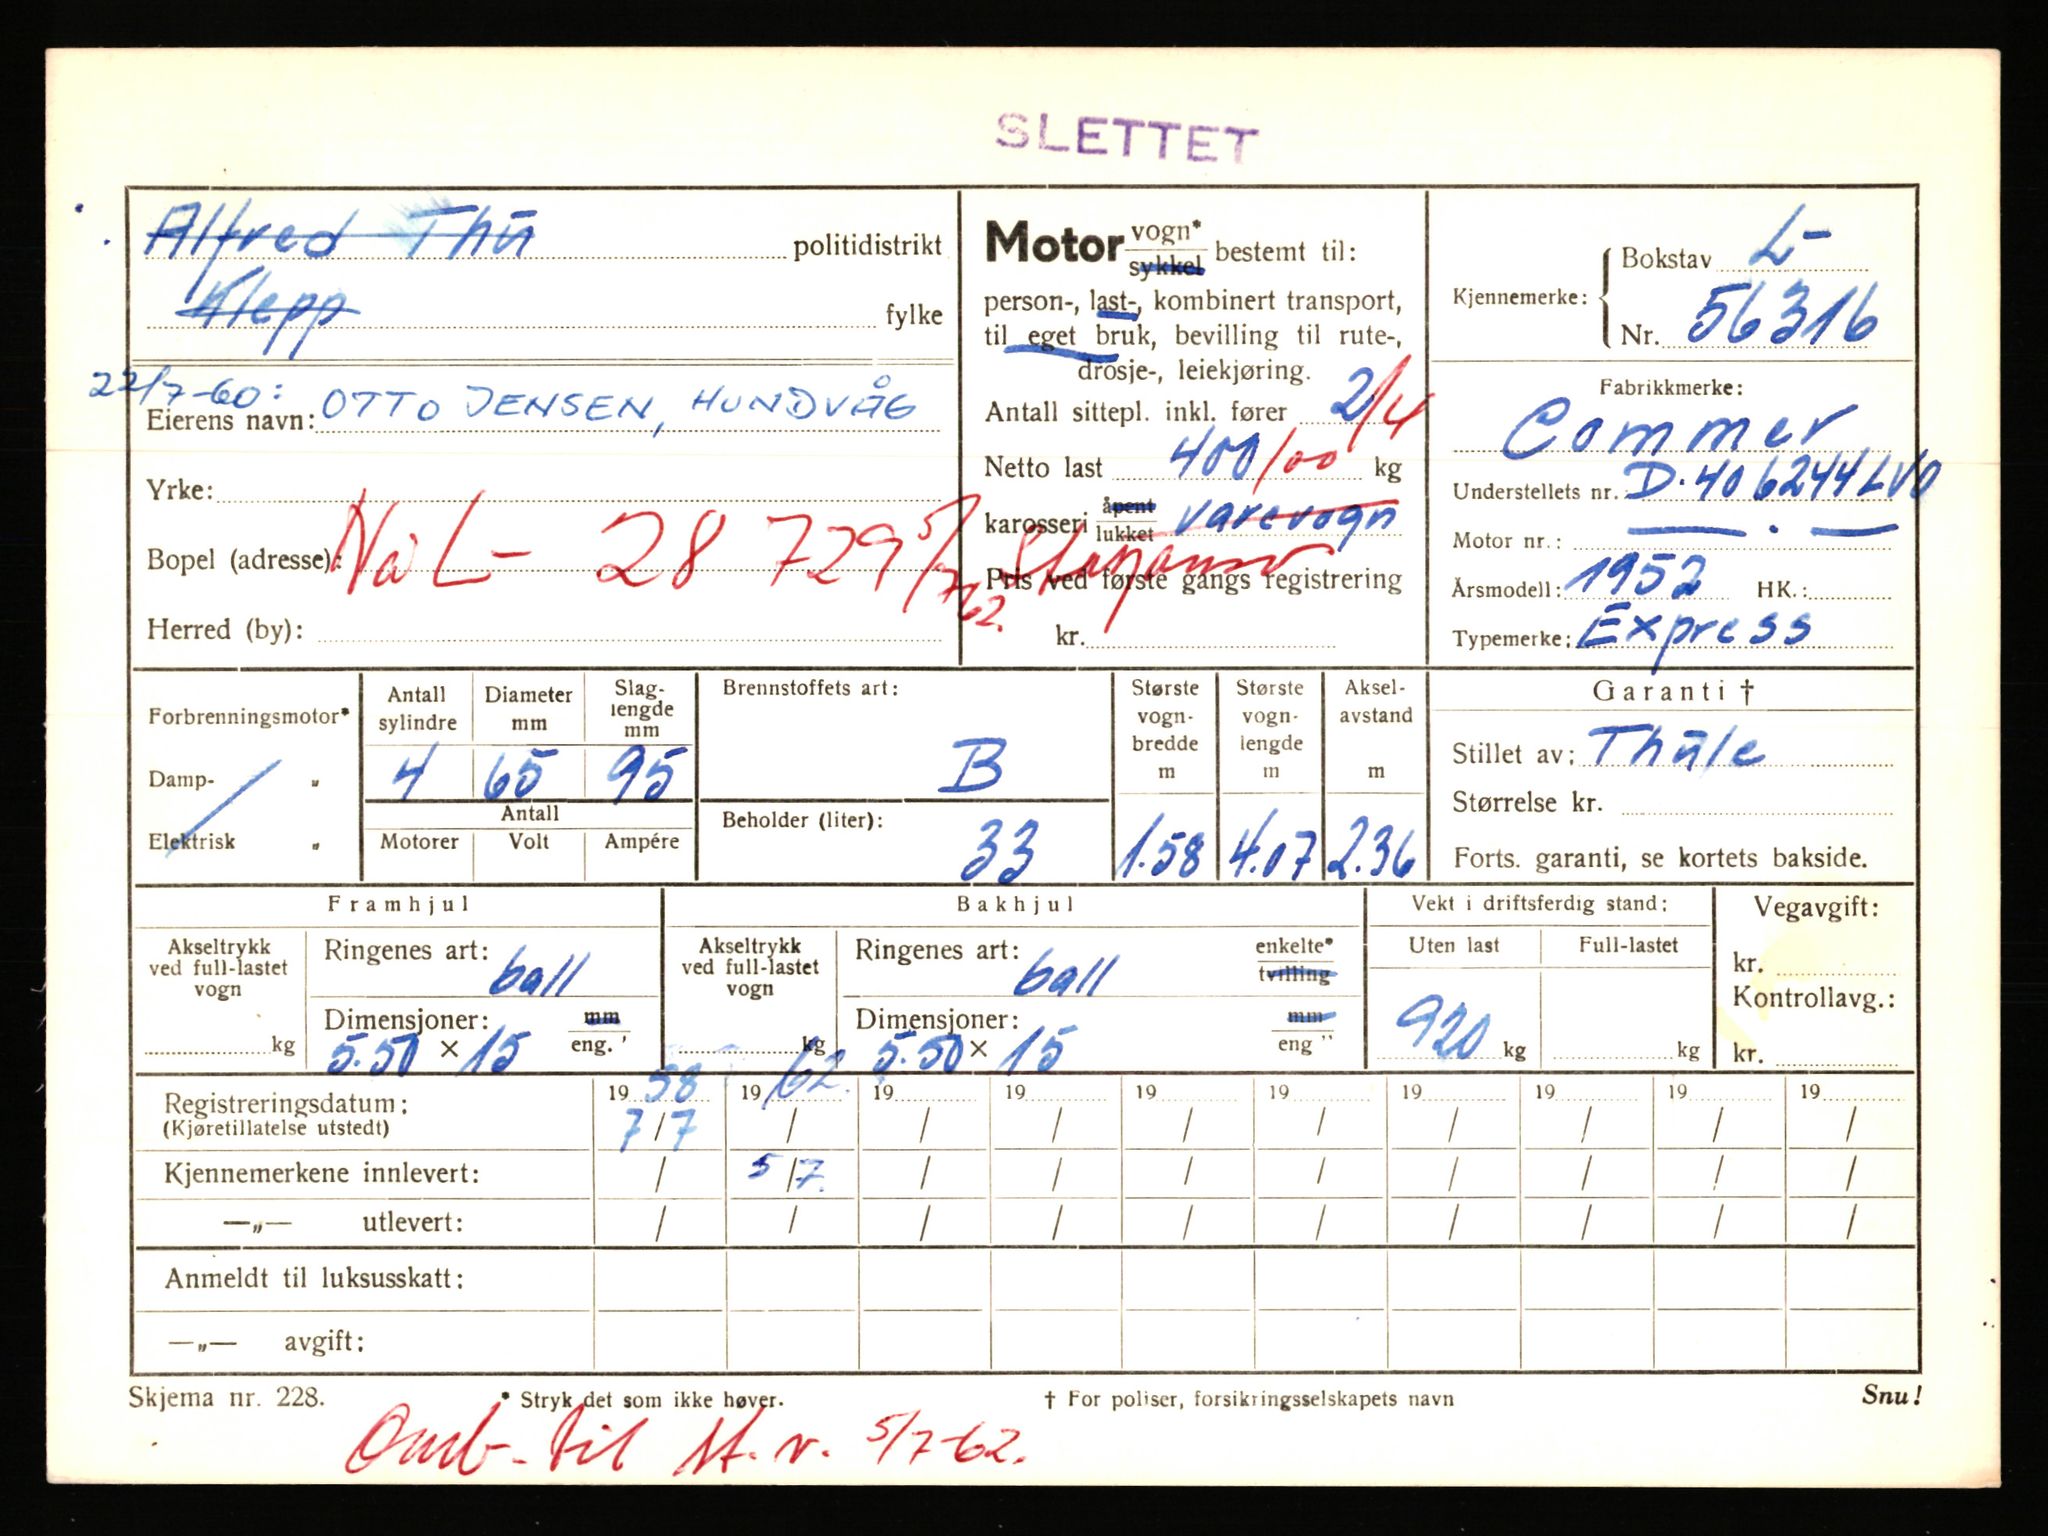 SLETTET
Alfred Thu politidistrikt
Klepp fylke
22/7-60:
Eierens navn: OTTO JENSEN, HUNDVÅG
Yrke:
Bopel (adresse): Nå L- 28 729 5/7-62.
Herred (by):
Motor vogn* sykkel bestemt til:
person-, last-, kombinert transport,
til eget bruk, bevilling til rute-,
drosje-, leiekjøring.
Antall sittepl. inkl. fører 2/4
Netto last 400/00 kg
karosseri åpent lukket varevogn
Pris ved første gangs registrering
kr.
Kjennemerke: Bokstav L-
Nr. 56316
Fabrikkmerke:
Commer
Understellets nr. D.406244LVO
Motor nr.: — . —
Årsmodell: 1952 HK.:
Typemerke: Express
Forbrenningsmotor*
Damp- „
Elektrisk „
Antall sylindre Diameter mm Slag-lengde mm
4 65 95
Antall
Motorer Volt Ampére
Brennstoffets art:
B
Beholder (liter):
33
Største vogn-bredde m Største vogn-lengde m Aksel-avstand m
1.58 4.07 2.36
Garanti †
Stillet av: Thule
Størrelse kr.
Forts. garanti, se kortets bakside.
Framhjul
Akseltrykk ved full-lastet vogn
kg
Ringenes art: ball
Dimensjoner: mm eng. '
5.50 × 15
Bakhjul
Akseltrykk ved full-lastet vogn
kg
Ringenes art: ball enkelte* tvilling
Dimensjoner: mm eng "
5.50 × 15
Vekt i driftsferdig stand:
Uten last Full-lastet
920 kg kg
Vegavgift:
kr.
Kontrollavg.:
kr.
19 58 19 62. 19 19 19 19 19 19 19 19
Registreringsdatum: 7/7 / / / / / / / / /
(Kjøretillatelse utstedt)
Kjennemerkene innlevert: / 5/7. / / / / / / / /
—„— utlevert: / / / / / / / / / /
Anmeldt til luksusskatt:
—„— avgift:
Skjema nr. 228. * Stryk det som ikke høver. † For poliser, forsikringsselskapets navn Snu!
Omb. til st. v. 5/7-62.